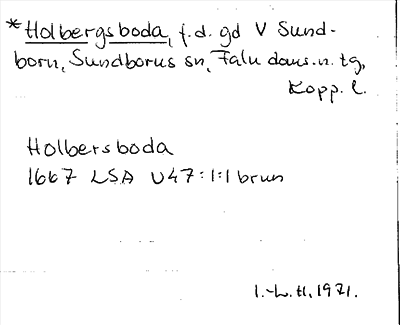 *Holbergsboda, f.d. gd V Sund-
born, Sundborns sn, Falu doms.n. tg,
Kopp. l.
Holbersboda
1667 LSA U47:1:1 brun
I.-L. H, 1971.